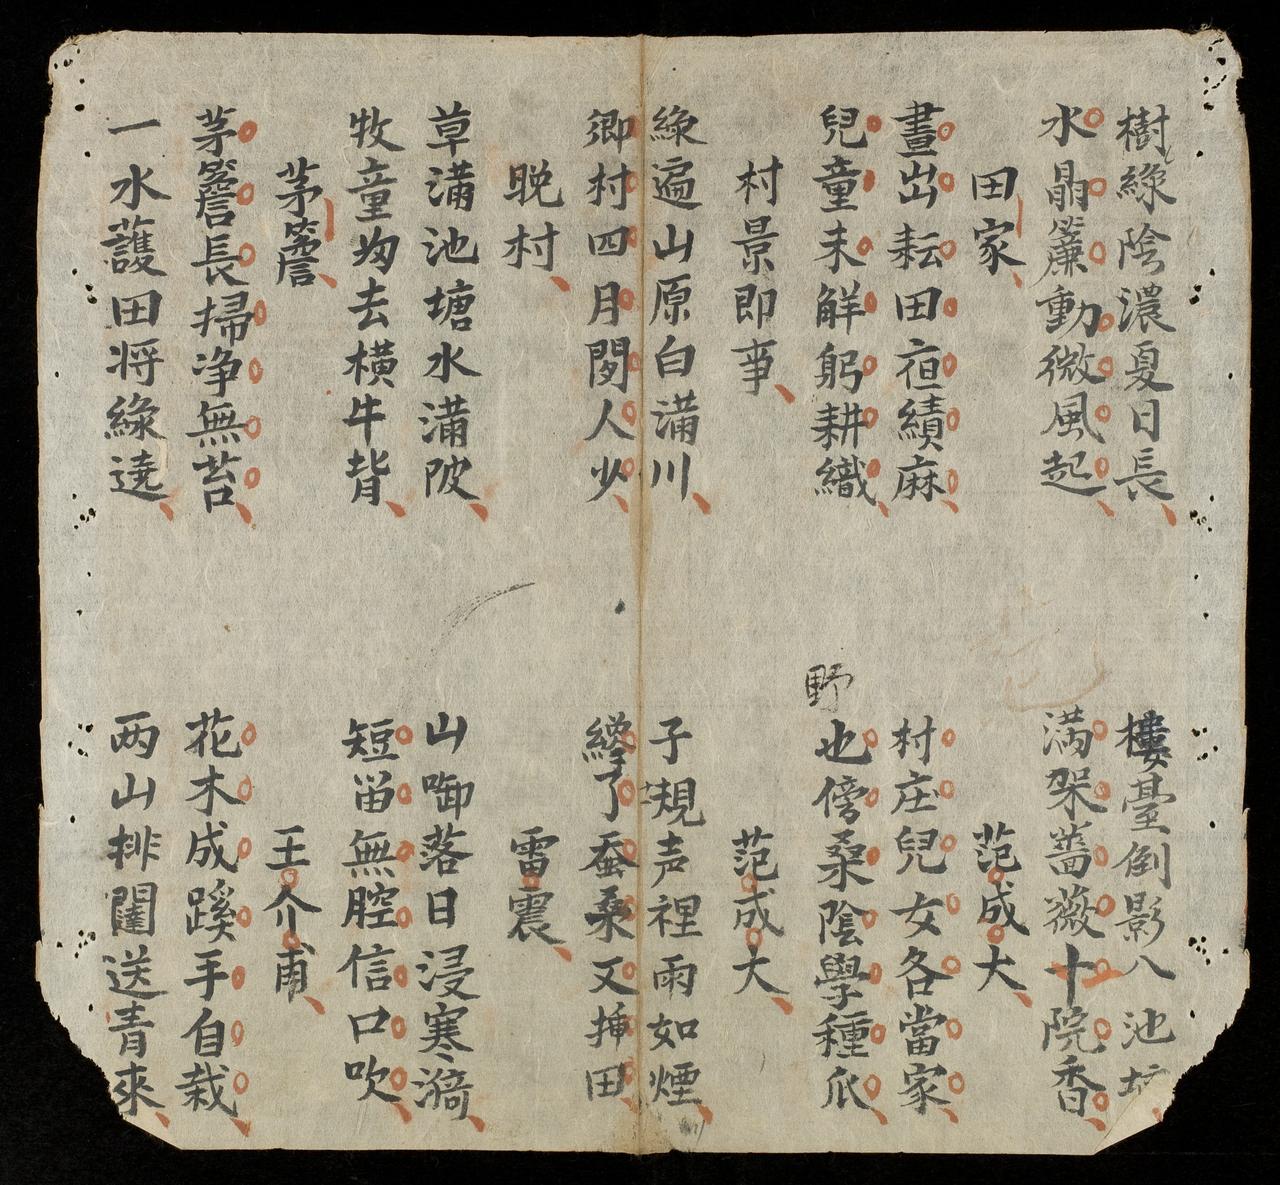 樹綠陰濃夏日長
樓臺倒影入池塘
水晶簾動微風起
滿架薔薇十院香
田家
范成大
晝出耘田夜績麻
村庄兒女各當家
兒童未解躬耕織
野
也傍桑陰學種瓜
村景即事
范成大
綠遍山原白滿川
子規声裡雨如煙
鄉村四月閑人少
纔了蚕桑又揷田
晚村
雷震
草滿池塘水滿陂
山啣落日浸寒漪
牧童㱕去橫牛背
短笛無腔信口吹
茅簷
王介甫
茅簷長掃净無苔
花木成蹊手自栽
一水護田将綠遶
两山排闥送青來